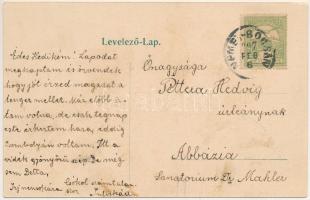 Levelező-Lap.
Édes Hedikém! Lapodat
megkaptam és örvendek
hogy jól érzed magadat a
tenger mellet. Már előbb ír-
tam volna, de csak tegnap
este érkeztem haza, eddig
Zombolyán voltam. Itt a
vidék gyönyörű
sem. Detta,
Írj mennél Csókol számtalan-
szor
Őnagysága
Hedvig
úrleánynak
Abbázia
Sanatorium Dr Mahler
907
FEB
6